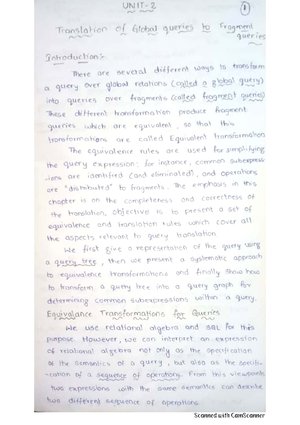 UNIT-2
1
Translation of Global queries to Fragment
queries
Introduction:-
There are several different ways to transform
a query over global relations (called a global query)
into queries over fragments (called fragment queries)
These different transformation produce fragment
queries which are equivalent, so that this
transformations are called Equivalent transformation
The equivalence rules are used for simplifying
the query expression; for instance, common subexpress
-ions are identified (and eliminated), and operations
are "distributed" to fragments. The emphasis in this
chapter is on the completeness and correctness of
the translation, objective is to present a set of
equivalence and translation rules which cover all
the aspects relevant to query translation.
We first give a representation of the query using
a query tree, then we present a systematic approach
to equivalence transformations and finally show how
to transform a query tree into a query graph for
determining common subexpressions within a query.
Equivalance Transformations for Queries
We use relational algebra and SQL for this
purpose. However, we can interpret an expression
of relational algebra not only as the specification
of the semantics of a query, but also as the specifi-
-cation of a sequence of operations. From this viewpoint
two expressions with the same semantics can describe
two different sequence of operations.
Scanned with CamScanner